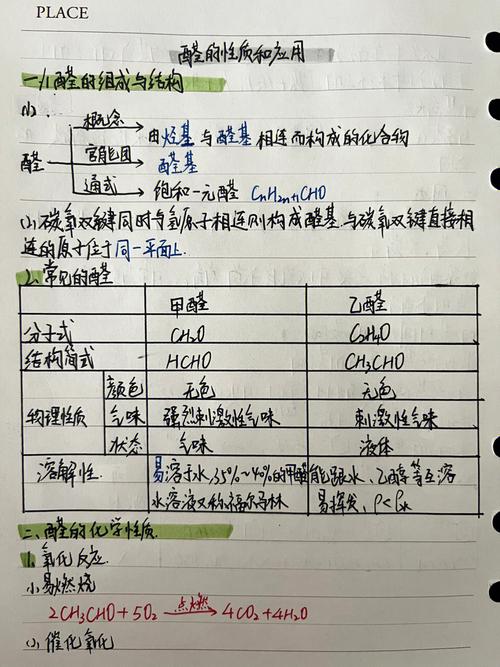 PLACE
醛的性质和应用
一、醛的组成与结构
(1).
概念 由烃基与醛基相连而构成的化合物
醛 官能团 醛基
通式 饱和一元醛 CnH2n+1CHO
(2) 碳氧双键同时与氢原子相连则构成醛基.与碳氧双键直接相
连的原子位于同一平面上.
2、常见的醛
甲醛 乙醛
分子式 CH2O C2H4O
结构简式 HCHO CH3CHO
颜色 无色 无色
物理性质 气味 强烈刺激性气味 刺激性气味
状态 气味 液体
溶解性. 易溶于水,35%~40%的甲醛 能跟水、乙醇等互溶
水溶液又称福尔马林 易挥发, ρ<ρ水
二、醛的化学性质.
1. 氧化反应.
(1) 易燃烧
2CH3CHO+5O2 点燃 4CO2+4H2O
(2) 催化氧化